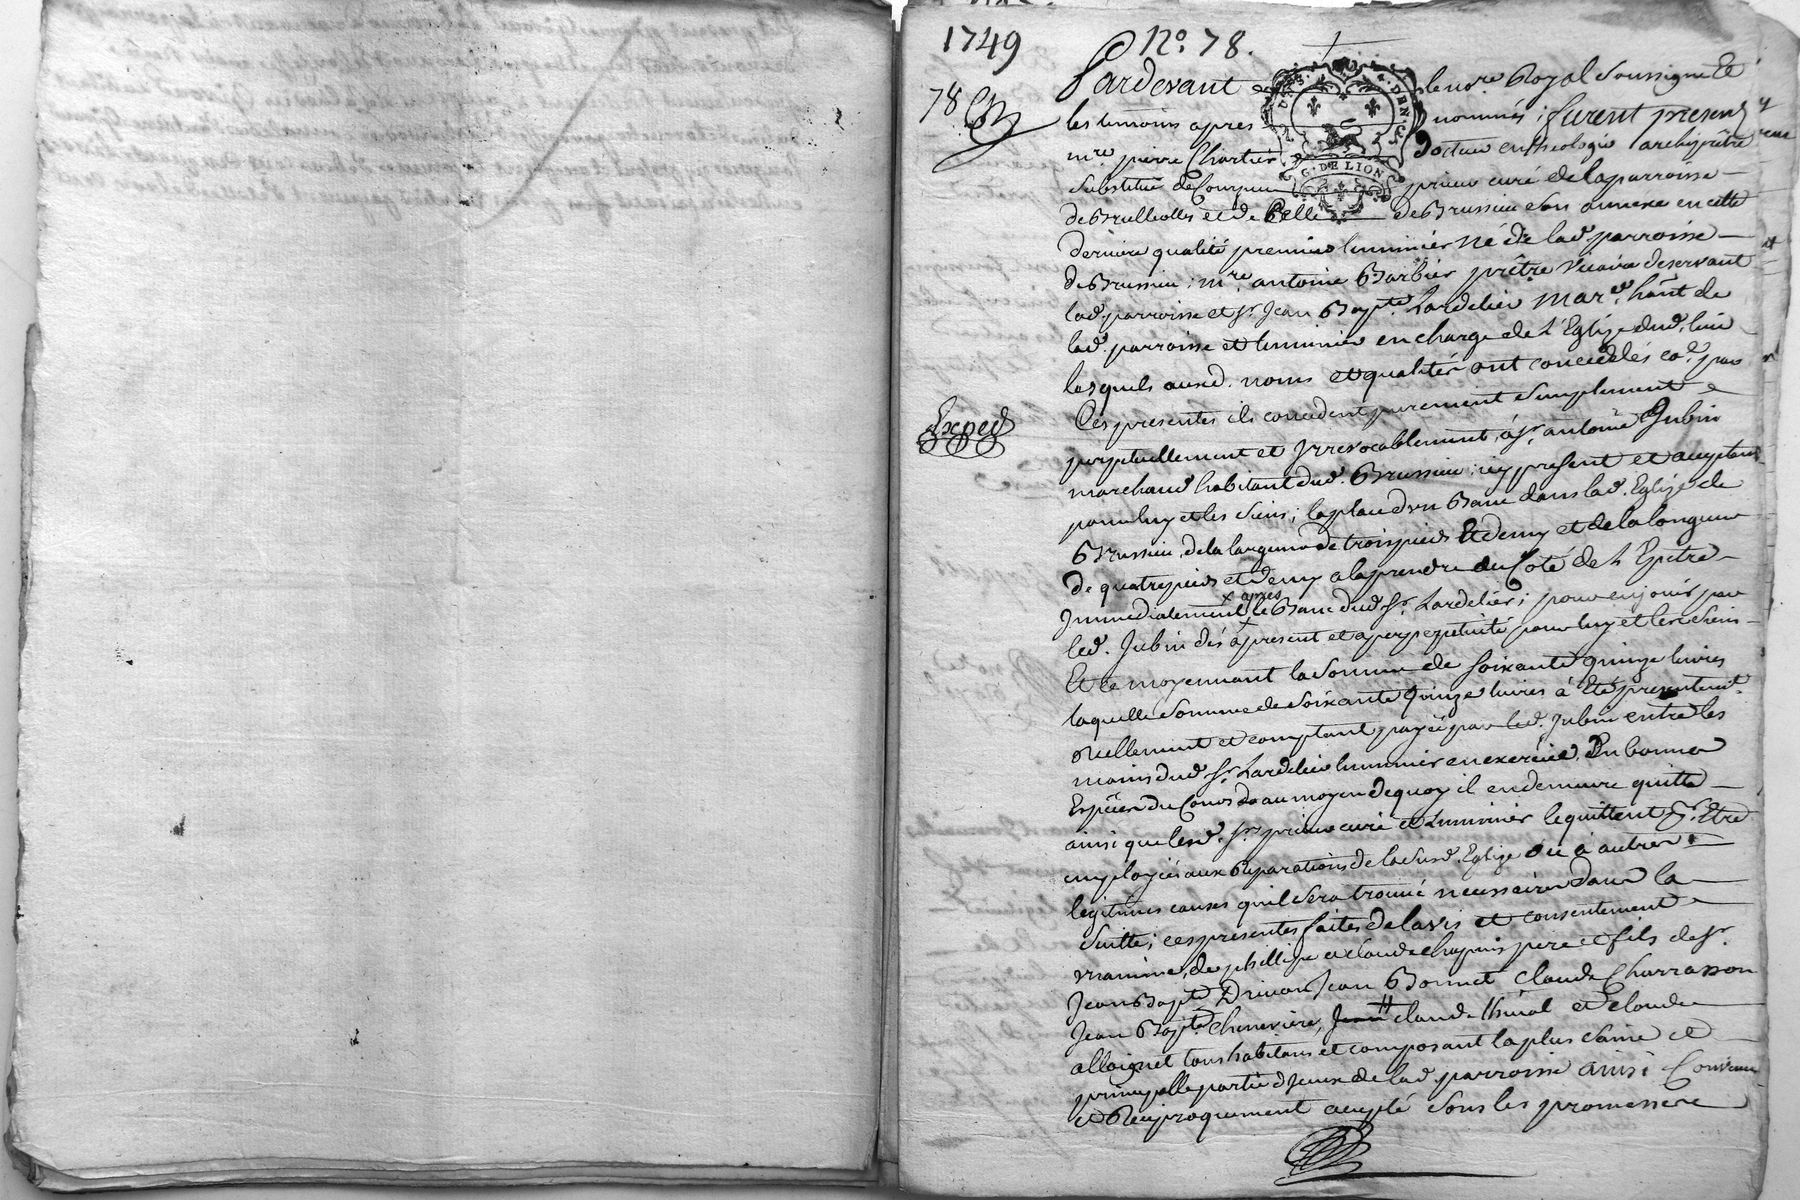 1749
No. 78.
78
Pardevant le no.re Royal Soussigné Et
les temoins apres nommés ; furent presents
m.re pierre Chartier Docteur en theologie archiprêtre
Substitut de Courzieu prieur curé de la parroisse
de Brullioles et de Celle de Brussieu son annexe en cette
derniere qualité premier luminier Né de lad. parroisse
de Brussieu ; m.re antoine Barbier prêtre Vicaire deservant
lad. parroisse et s.r Jean Bap.te Lardelier mar.d h̃ant de
lad. parroisse et luminier en charge de L'Eglize dud. lieu
lesquels ausd. noms et qualités ont concedés co.e par
Ces presentes ils concedent purement simplement
perpetuellement et Irrevocablement, à s.r antoine Jubin
marchand habitant dud. Brussieu ; icy present et acceptant
pour luy et les siens ; la place d'un Banc dans lad. Eglize de
Brussieu, de la largeur de trois pieds Et demy et de la longueur
de quatre pieds et demy a la prendre du Coté de L'Epitre
x apres
Immediatement x le Banc dud. S.r Lardelier ; pour en jouir par
led. Jubin dés à present et a perpetuité pour luy et les siens
Et ce moyennant la somme de soixante quinze livres
laquelle somme de soixante quinze livres à Eté presentement
réellement et comptant payée par led. Jubin entre les
mains dud. S.r Lardelier luminier en exercice, En bonnes
Espèces du Cours du au moyen de quoy il en demeure quitte
ainsi que lesd. S.rs prieur curé et Luminier le quittent P.r Etre
employées aux Reparations de la susd. Eglize ou à autres
legitimes causes qu'il sera trouvé necessaires dans la
suitte ; ces presentes faites de l'avis et consentement
unanime, de phillipe et claude chapuis pere et fils de s.r
Jean Bap.te Drivon Jean Bonnet Claude Charrasson
Jean Bap.te Chenevière, Jean claude thival et claude
alloignet tous habitans et composant la plus saine et
principalle partie d'jceux de lad. parroisse ainsi Convenu
et Reciproquement accepté sous les promesses
Exped
G. DE LION